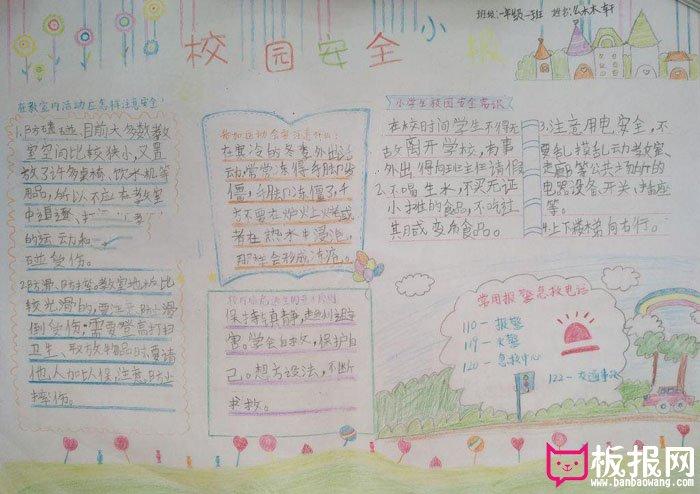 校园安全小报
班级:一年级一班 姓名:
在教室内活动应怎样注意安全
1.防磕碰。目前大多数教
室空间比较狭小,又置
放了许多桌椅、饮水机等
用品,所以不应在教室
中追逐、打
的运动和
碰受伤。
2.防滑、防摔。教室地板比
较光滑的,要注意防滑
倒受伤。需要登高打扫
卫生、取放物品时,要请
他人加以保,注意防止
摔伤。
参加运动会要注意什么:
在寒冷的冬季外出活
动常常冻得手脚
僵,手脚冻僵了,千
万不要在炉火上烤或
者在热水中浸泡,
那样会形成冻疮。
保持镇静,趋利避
害。学会自救,保护自
己。想方设法,不断
求救。
小学生校园安全常识
1.在校时间学生不得无
故离开学校,有事
外出得向班主任请假
2.不喝生水,不买无证
小摊的食品,不吃过
其月或变质食品。
3.注意用电安全,不
要乱摸乱动教室、
走廊等公共场所的
电器设备、开关、插座
等。
4.上下楼梯向右行。
常用报警急救电话
110—报警
119—火警
120—急救中心
122—交通事故
板报网
www.banbaowang.com